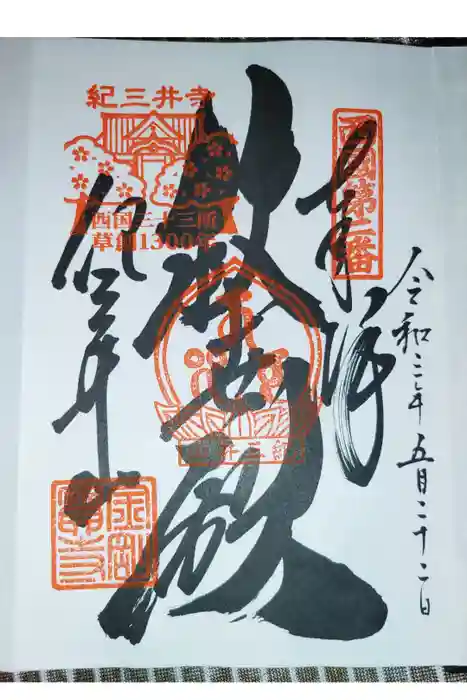 西國第二番
奉拝
令和三年五月二十二日
救世殿
紀三井寺
紀三井寺
西国三十三所
草創1300年
紀三井寺
金剛寶寺